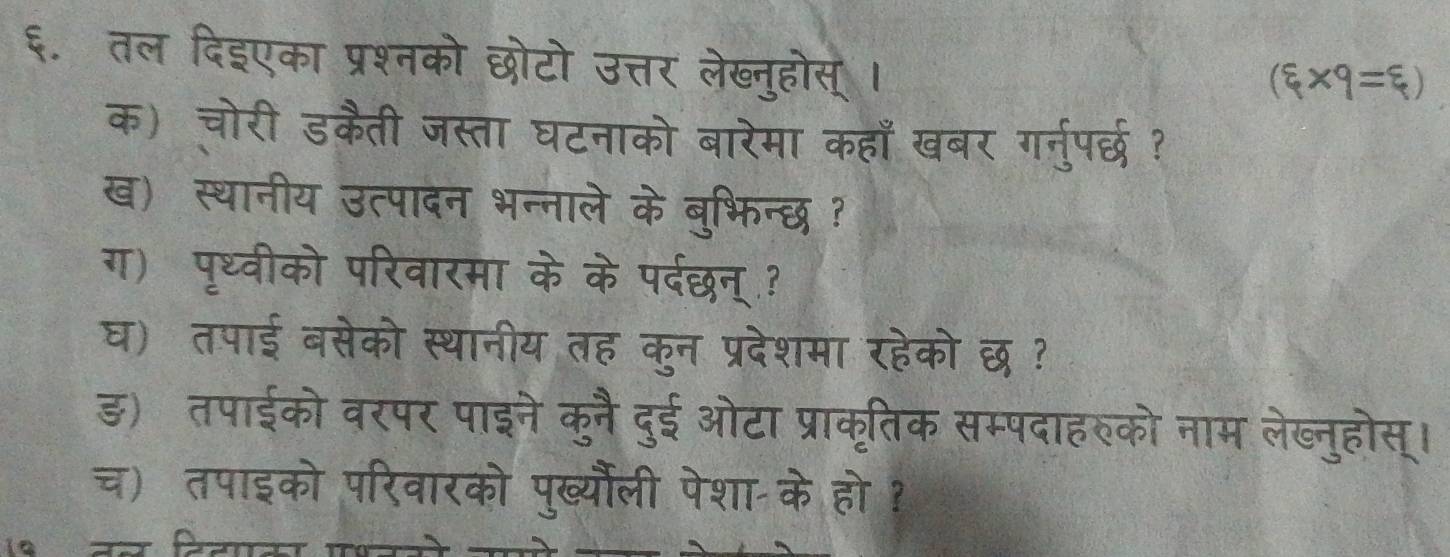 ६. तल दिइएका प्रश्नको छोटो उत्तर लेख्नुहोस् । (६×१=६)
क) चोरी डकैती जस्ता घटनाको बारेमा कहाँ खबर गर्नुपर्छ ?
ख) स्थानीय उत्पादन भन्नाले के बुझिन्छ ?
ग) पृथ्वीको परिवारमा के के पर्दछन् ?
घ) तपाई बसेको स्थानीय तह कुन प्रदेशमा रहेको छ ?
ङ) तपाईको वरपर पाइने कुनै दुई ओटा प्राकृतिक सम्पदाहरुको नाम लेख्नुहोस्।
च) तपाइको परिवारको पुर्ख्यौली पेशा- के हो ?
तल दिइएका प्रश्नको